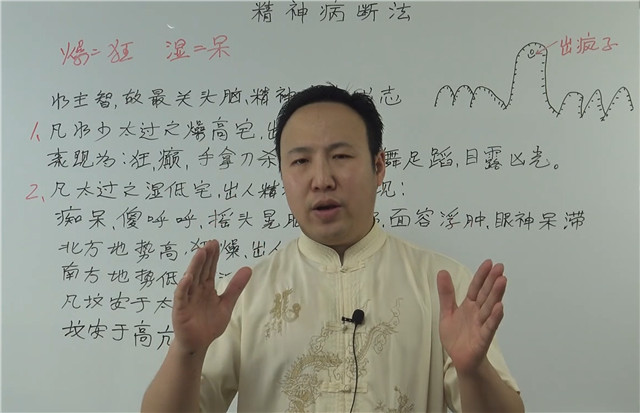 精神病断法
燥=狂 湿=呆
出疯子
水主智,故最关头脑,精神 志
1、凡水少太过之燥高宅,出
表现为:狂,癫,手拿刀杀 舞足蹈,目露凶光。
2、凡太过之湿低宅,出人精 现:
痴呆,傻呼呼,摇头晃 面容浮肿,眼神呆滞
北方地势高,狂燥,出人
南方地势低
凡坟安于太
坟安于高亢